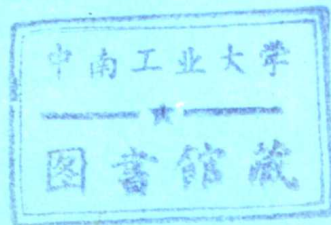 中南工业大学
★
图書館藏